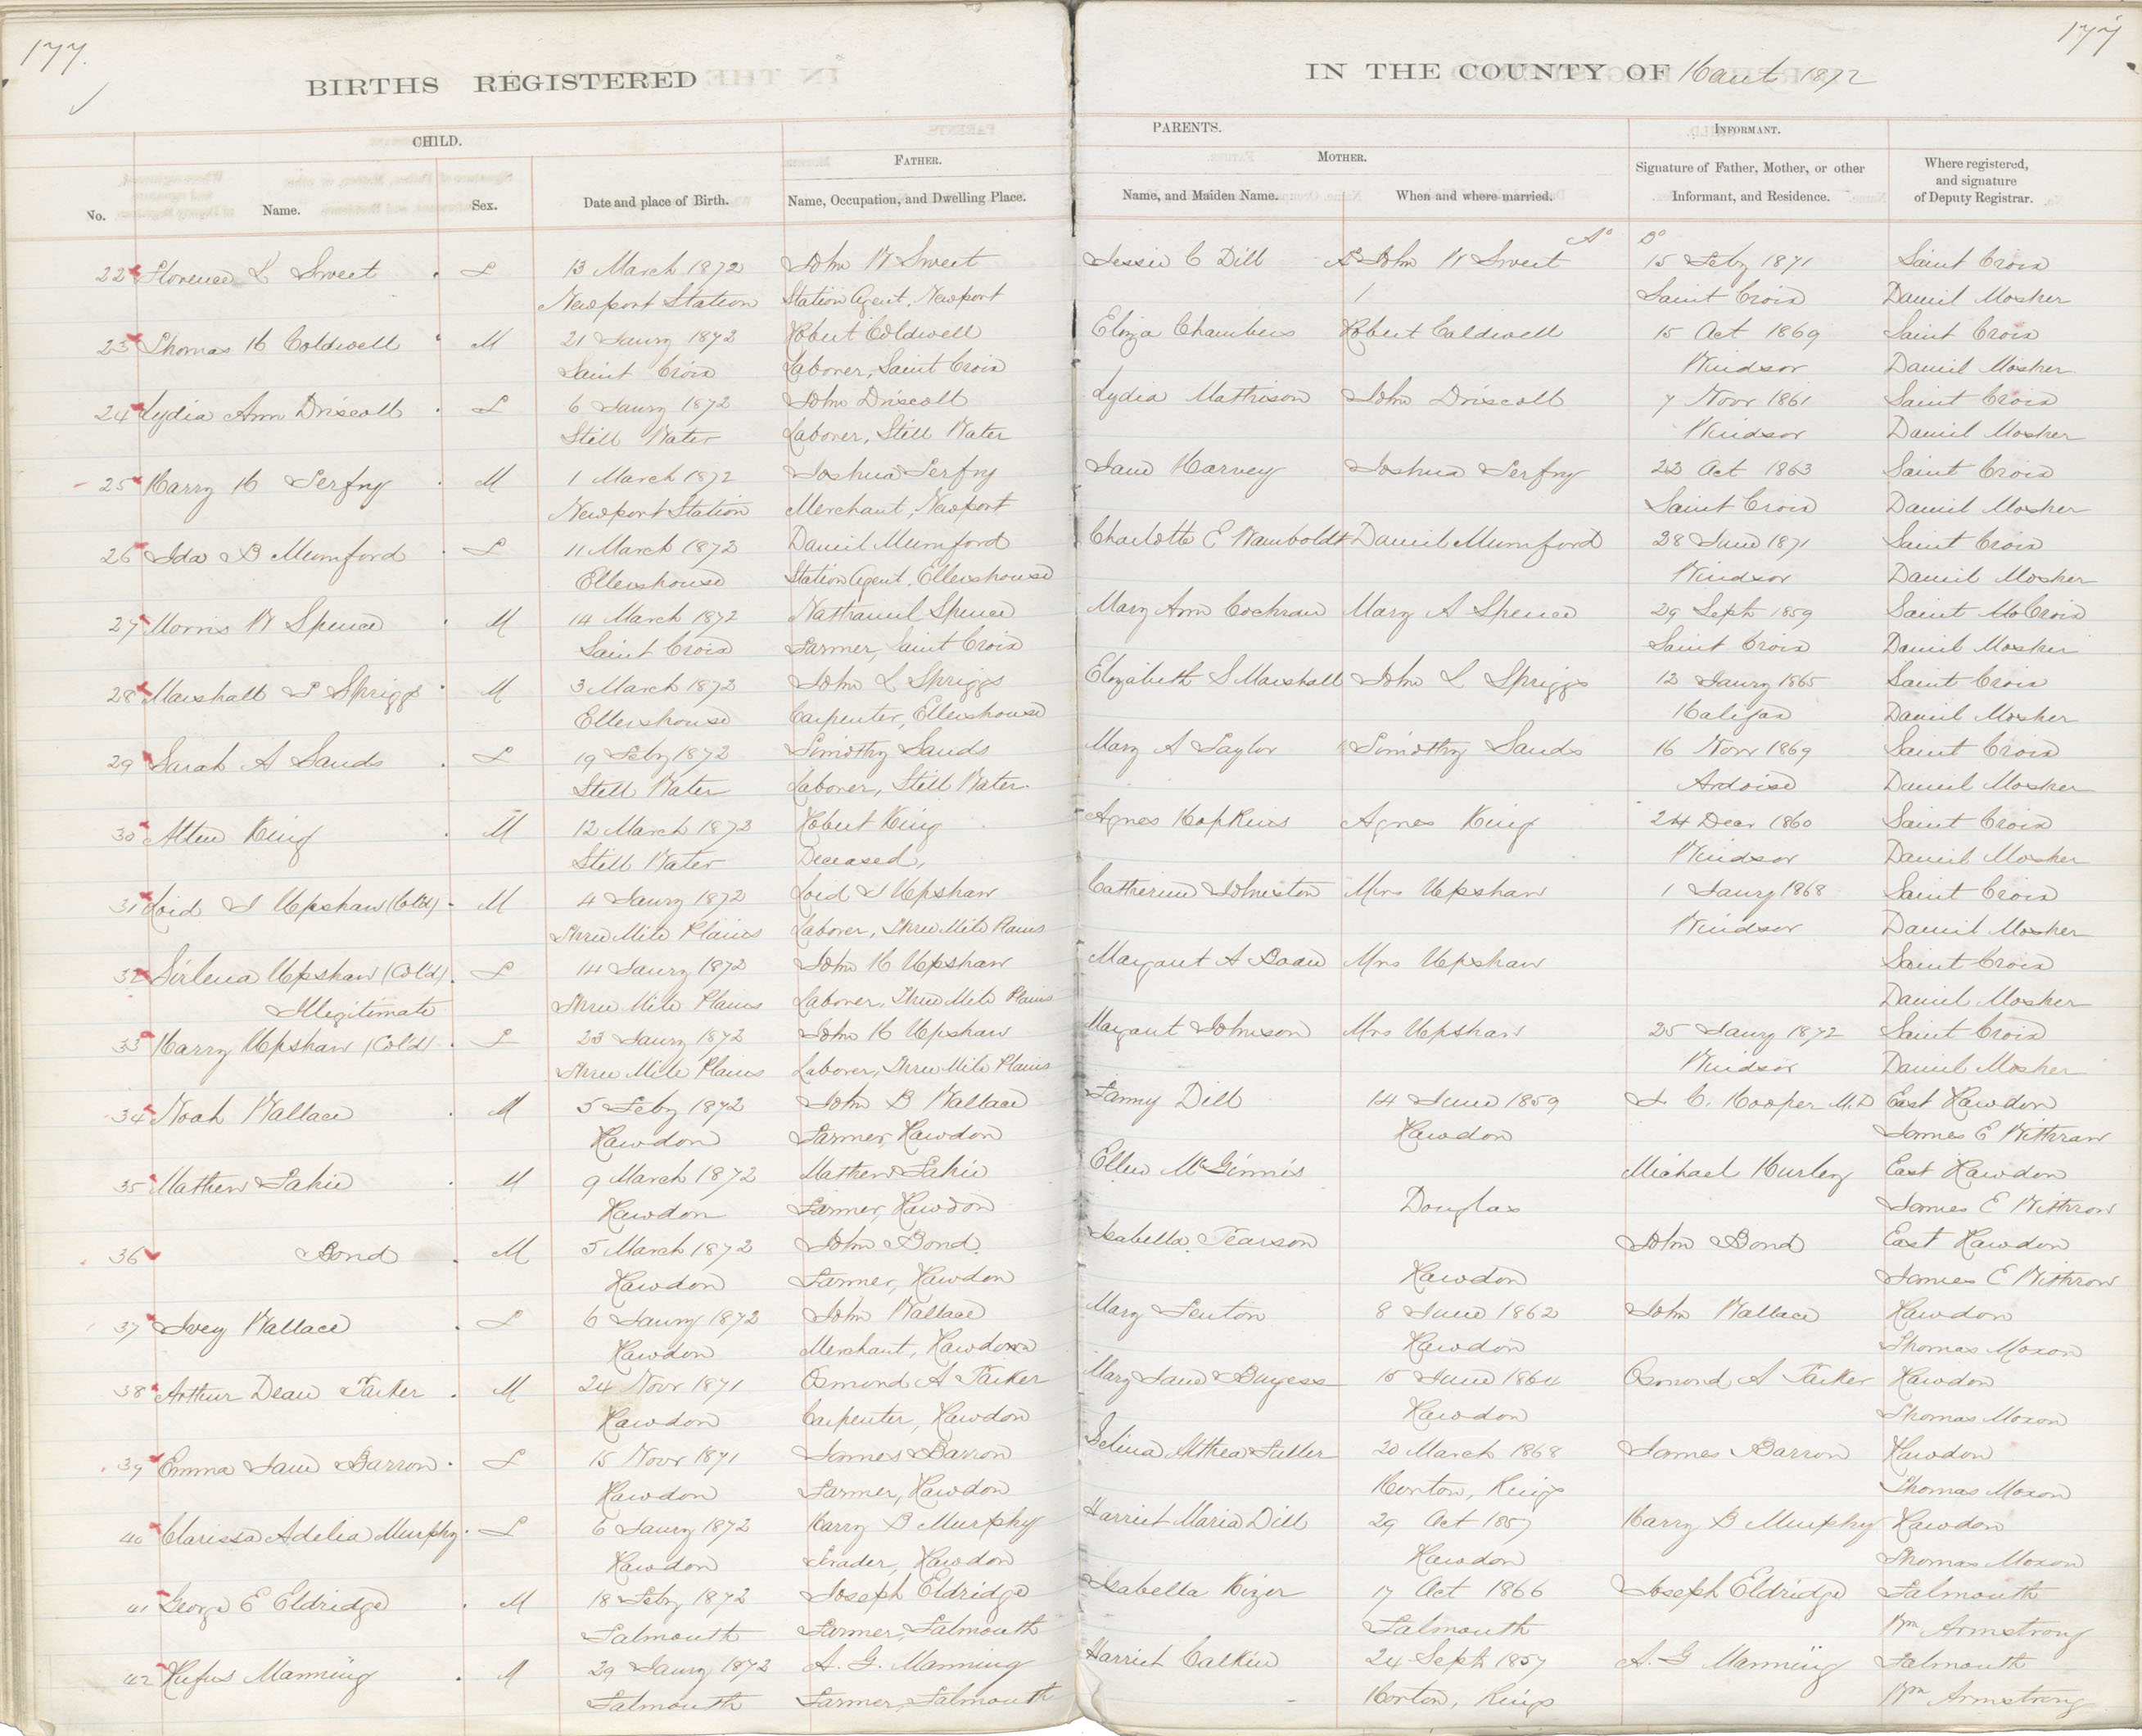 177.
177
BIRTHS REGISTERED
IN THE COUNTY OF Hants 1872
CHILD.
PARENTS.
INFORMANT.
FATHER.
MOTHER.
No.
Name.
Sex.
Date and place of Birth.
Name, Occupation, and Dwelling Place.
Name, and Maiden Name.
When and where married.
Signature of Father, Mother, or other Informant, and Residence.
Where registered, and signature of Deputy Registrar.
22 Florence L Sweet F 13 March 1872 John W Sweet Jessie C Dill John W Sweet 15 Feby 1871 Saint Croix
Newport Station Station Agent, Newport Saint Croix Daniel Mosher
23 Thomas H Coldwell M 21 Jaury 1872 Robert Coldwell Eliza Chambers Robert Caldwell 15 Oct 1869 Saint Croix
Saint Croix Laborer, Saint Croix Windsor Daniel Mosher
24 Lydia Ann Driscoll F 6 Jaury 1872 John Driscoll Lydia Mathison John Driscoll 7 Novr 1861 Saint Croix
Still Water Laborer, Still Water Windsor Daniel Mosher
25 Harry H M 1 March 1872 Joshua Jane Harvey Joshua 22 Oct 1863 Saint Croix
Newport Station Merchant, Newport Saint Croix Daniel Mosher
26 Ida B Mumford F 11 March 1872 Daniel Mumford Charlotte E Wamboldt Daniel Mumford 28 June 1871 Saint Croix
Ellershouse Station Agent, Ellershouse Windsor Daniel Mosher
27 Morris W Spence M 14 March 1872 Nathaniel Spence Mary Ann Cochran Mary A Spence 29 Sept 1859 Saint Croix
Saint Croix Farmer, Saint Croix Saint Croix Daniel Mosher
28 Marshall S Spriggs M 3 March 1872 John L Spriggs Elizabeth S Marshall John L Spriggs 12 Jaury 1865 Saint Croix
Ellershouse Carpenter, Ellershouse Halifax Daniel Mosher
29 Sarah A Sands F 19 Feby 1872 Timothy Sands Mary A Taylor Timothy Sands 16 Novr 1869 Saint Croix
Still Water Laborer, Still Water. Ardoise Daniel Mosher
30 Allen King M 12 March 1872 Robert King Agnes Hopkins Agnes King 24 Decr 1860 Saint Croix
Still Water Deceased, Windsor Daniel Mosher
31 Loid J Upshaw (Cold) M 4 Jaury 1872 Loid J Upshaw Catherine Johnston Mrs Upshaw 1 Jaury 1868 Saint Croix
Three Mile Plains Laborer, Three Mile Plains Windsor Daniel Mosher
32 Sirlena Upshaw (Cold) F 14 Jaury 1872 John H Upshaw Margaret A Mrs Upshaw Saint Croix
Illegitimate Three Mile Plains Laborer, Three Mile Plains Daniel Mosher
33 Harry Upshaw (Cold) F 23 Jaury 1872 John H Upshaw Margaret Johnson Mrs Upshaw 25 Jaury 1872 Saint Croix
Three Mile Plains Laborer, Three Mile Plains Windsor Daniel Mosher
34 Noah Wallace M 5 Feby 1872 John B Wallace Fanny Dill 14 June 1859 J. C. Hooper M.D East Rawdon
Rawdon Farmer, Rawdon Rawdon James E Withrow
35 Mathew Fahie M 9 March 1872 Mathew Fahie Ellen McGinnis Michael Hurley East Rawdon
Rawdon Farmer, Rawdon Douglas James E Withrow
36 Bond M 5 March 1872 John Bond Isabella Pearson John Bond East Rawdon
Rawdon Farmer, Rawdon Rawdon James E Withrow
37 Ivey Wallace F 6 Jaury 1872 John Wallace Mary Fenton 8 June 1862 John Wallace Rawdon
Rawdon Merchant, Rawdon Rawdon Thomas Moxon
38 Arthur Dean Parker M 24 Novr 1871 Osmond A Parker Mary Jane Burgess 15 June 1864 Osmond A Parker Rawdon
Rawdon Carpenter, Rawdon Rawdon Thomas Moxon
39 Emma Jane Barron F 15 Novr 1871 James Barron Selina Althea Fuller 20 March 1868 James Barron Rawdon
Rawdon Farmer, Rawdon Horton, Kings Thomas Moxon
40 Clarissa Adelia Murphy F 6 Jaury 1872 Harry B Murphy Harriet Maria Dill 29 Oct 1857 Harry B Murphy Rawdon
Rawdon Trader, Rawdon Rawdon Thomas Moxon
41 George E Eldridge M 18 Feby 1872 Joseph Eldridge Isabella Kizer 17 Oct 1866 Joseph Eldridge Falmouth
Falmouth Farmer, Falmouth Falmouth Wm Armstrong
42 Rufus Manning M 29 Jaury 1872 A. G. Manning Harriet Calkin 24 Sept 1857 A. G Manning Falmouth
Falmouth Farmer, Falmouth Horton, Kings Wm Armstrong